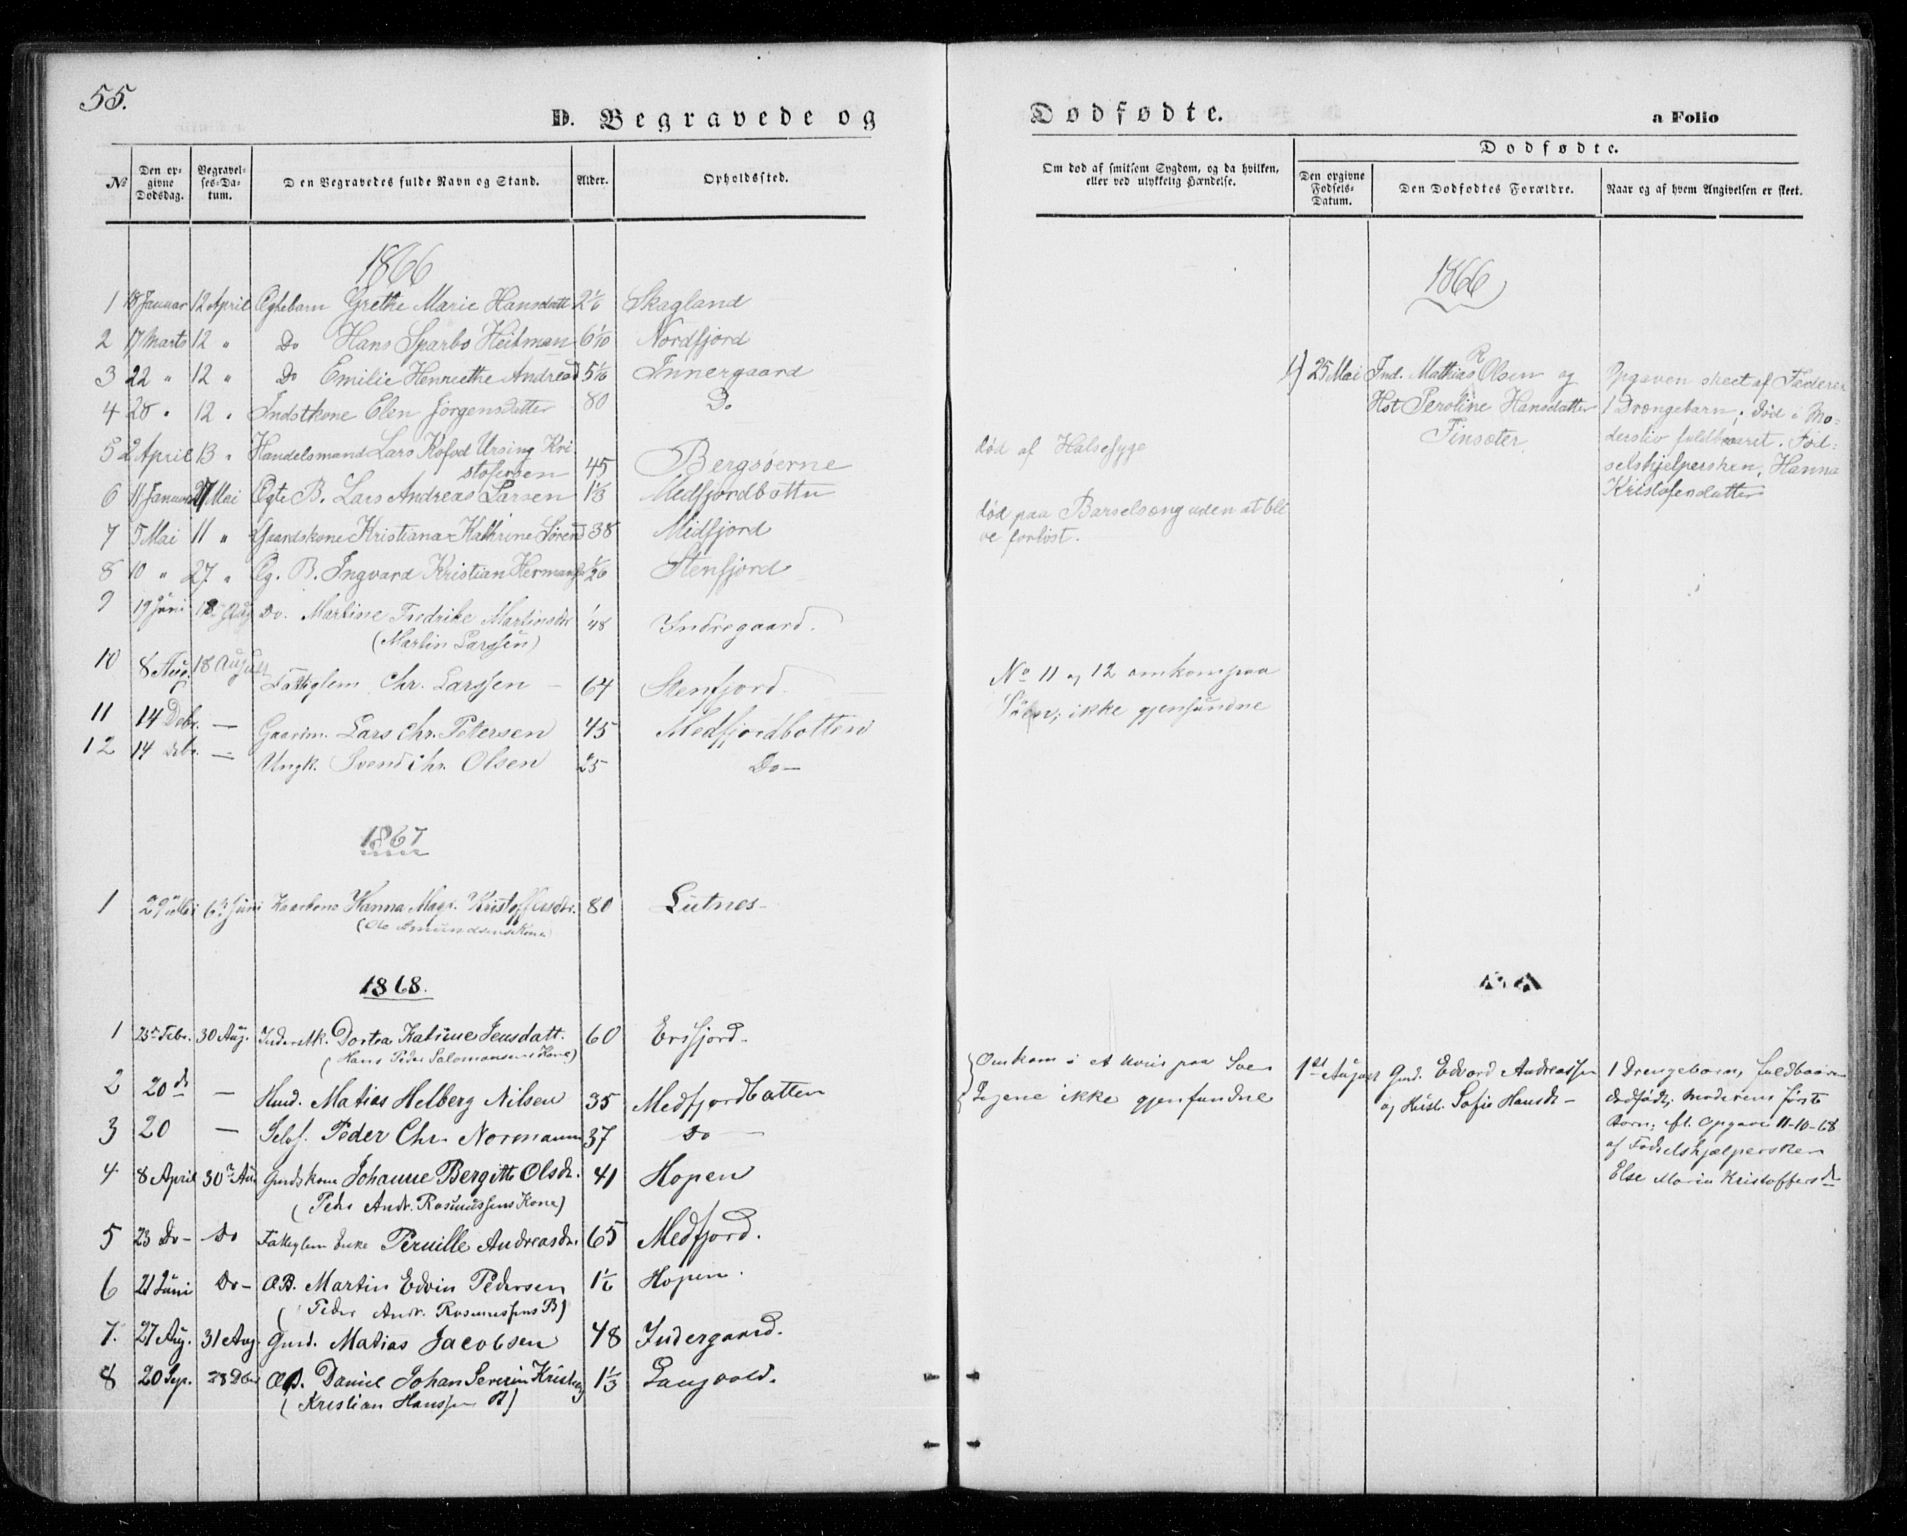 55.
D. Begravede og
Dødfødte.
a Folio
№
Den opgivne Dødsdag.
Begravelses-Datum.
Den Begravedes fulde Navn og Stand.
Alder.
Opholdssted.
Om død af smitsom Sygdom, og da hvilken, eller ved ulykkelig Hændelse.
Dødfødte.
Den opgivne Fødsels-Datum.
Den Dødfødtes Forældre.
Naar og af hvem Angivelsen er skeet.
1866
1 18 Januar 12 April Ægtebarn Grethe Marie Hansdatt 2 1/6 Skagland
2 17 Marts 12 " Do Hans Sparbo Heitman 6 1/10 Nordfjord
3 22 " 12 " Do Emilie Henriethe Andreasd 5 1/6 Innergaard
4 28 " 12 " Indstkone Elen Jørgensdatter 80 Do
5 2 April 13 " Handelsmand Lars Kofod Ursing Kri
stofersen 45 Bergsøerne
6 11 Januar 27 Mai Ægte B. Lars Andreas Larsen 1 1/3 Medfjordbotten
7 5 Mai 11 " Gaardskone Kristiana Kathrine Sørensd 38 Midfjord
8 10 " 27 " Æg. B. Ingvard Kristian Hermans 1/26 Stenfjord
9 19 Juni 18 Aug Do. Martine Fredrike Martinsdtr 1/48 Indregaard.
(Martin Larssen)
10 8 Aug. 18 August Fattiglem Chr. Larssen — 64 Stenfjord.
11 14 Debr. — Gaarm. Lars Chr. Petersen 45 Medfjordbotten
12 14 Debr. — Ungk. Svend Chr. Olsen 25 Do —
død af Halsesyge
død paa Barselseng uden at bli
ve forløst.
No 11 og 12 omkom paa
Søen; ikke gjenfundne
1866
1) 25 Mai Ind. Mathias R Olsen og
Hst Peroline Hansdatter
Finsæter
Opgaven skeet af Faderen
1 Drængebarn; død i Mo-
dersliv fuldbaaret. Fød-
selshjelpersken, Hanna
Kristofersdatter
1867
1 6te Juni Hanna Magr. Kristoffersdr. 80 Lutnes
(Ole Amundsens Kone)
1868.
1 23 Febr. 30 Aug. Inderstk. Dortea Katrine Jensdatt. 60 Ersfjord.
(Hans Peder Salomonsens Kone)
2 20 do — Husd. Matias Helberg Nilsen 35 Medfjordbotten
3 20 — Selvf. Peder Chr. Normann 37 Do —
4 8 April 30 Aug Gmdskone Johanne Bergitte Olsdr. 41 Hopen
(Peder Andr. Rasmussens Kone)
5 23 Do — Do Fattiglem Enke Pernille Andreasdr. 65 Medfjord.
6 21 Juni Do — ÆB. Martin Edvin Pedersen 1 1/6 Hopen.
(Peder Andr. Rasmussens B)
7. 27 Aug. 31 Aug. Gmd. Matias Jacobsen 48 Indergaard.
8 20 Sep. 28 Dbr ÆB. Daniel Johan Severin Kristians 1 1/3 Langvold.
(Kristian Hanssens B)
Omkom i et Kuls paa Søen
Ligene ikke gjenfundne
1ste August Gmd. Edvard Andreassen
og Hust. Sofie Hansdr —
1 Drengebarn, fuldbaaren
dødfødt; Moderens første
Barn; fl. Opgave 11-10-68
af Fødselshjælpersken
Else Maria Kristoffersdr